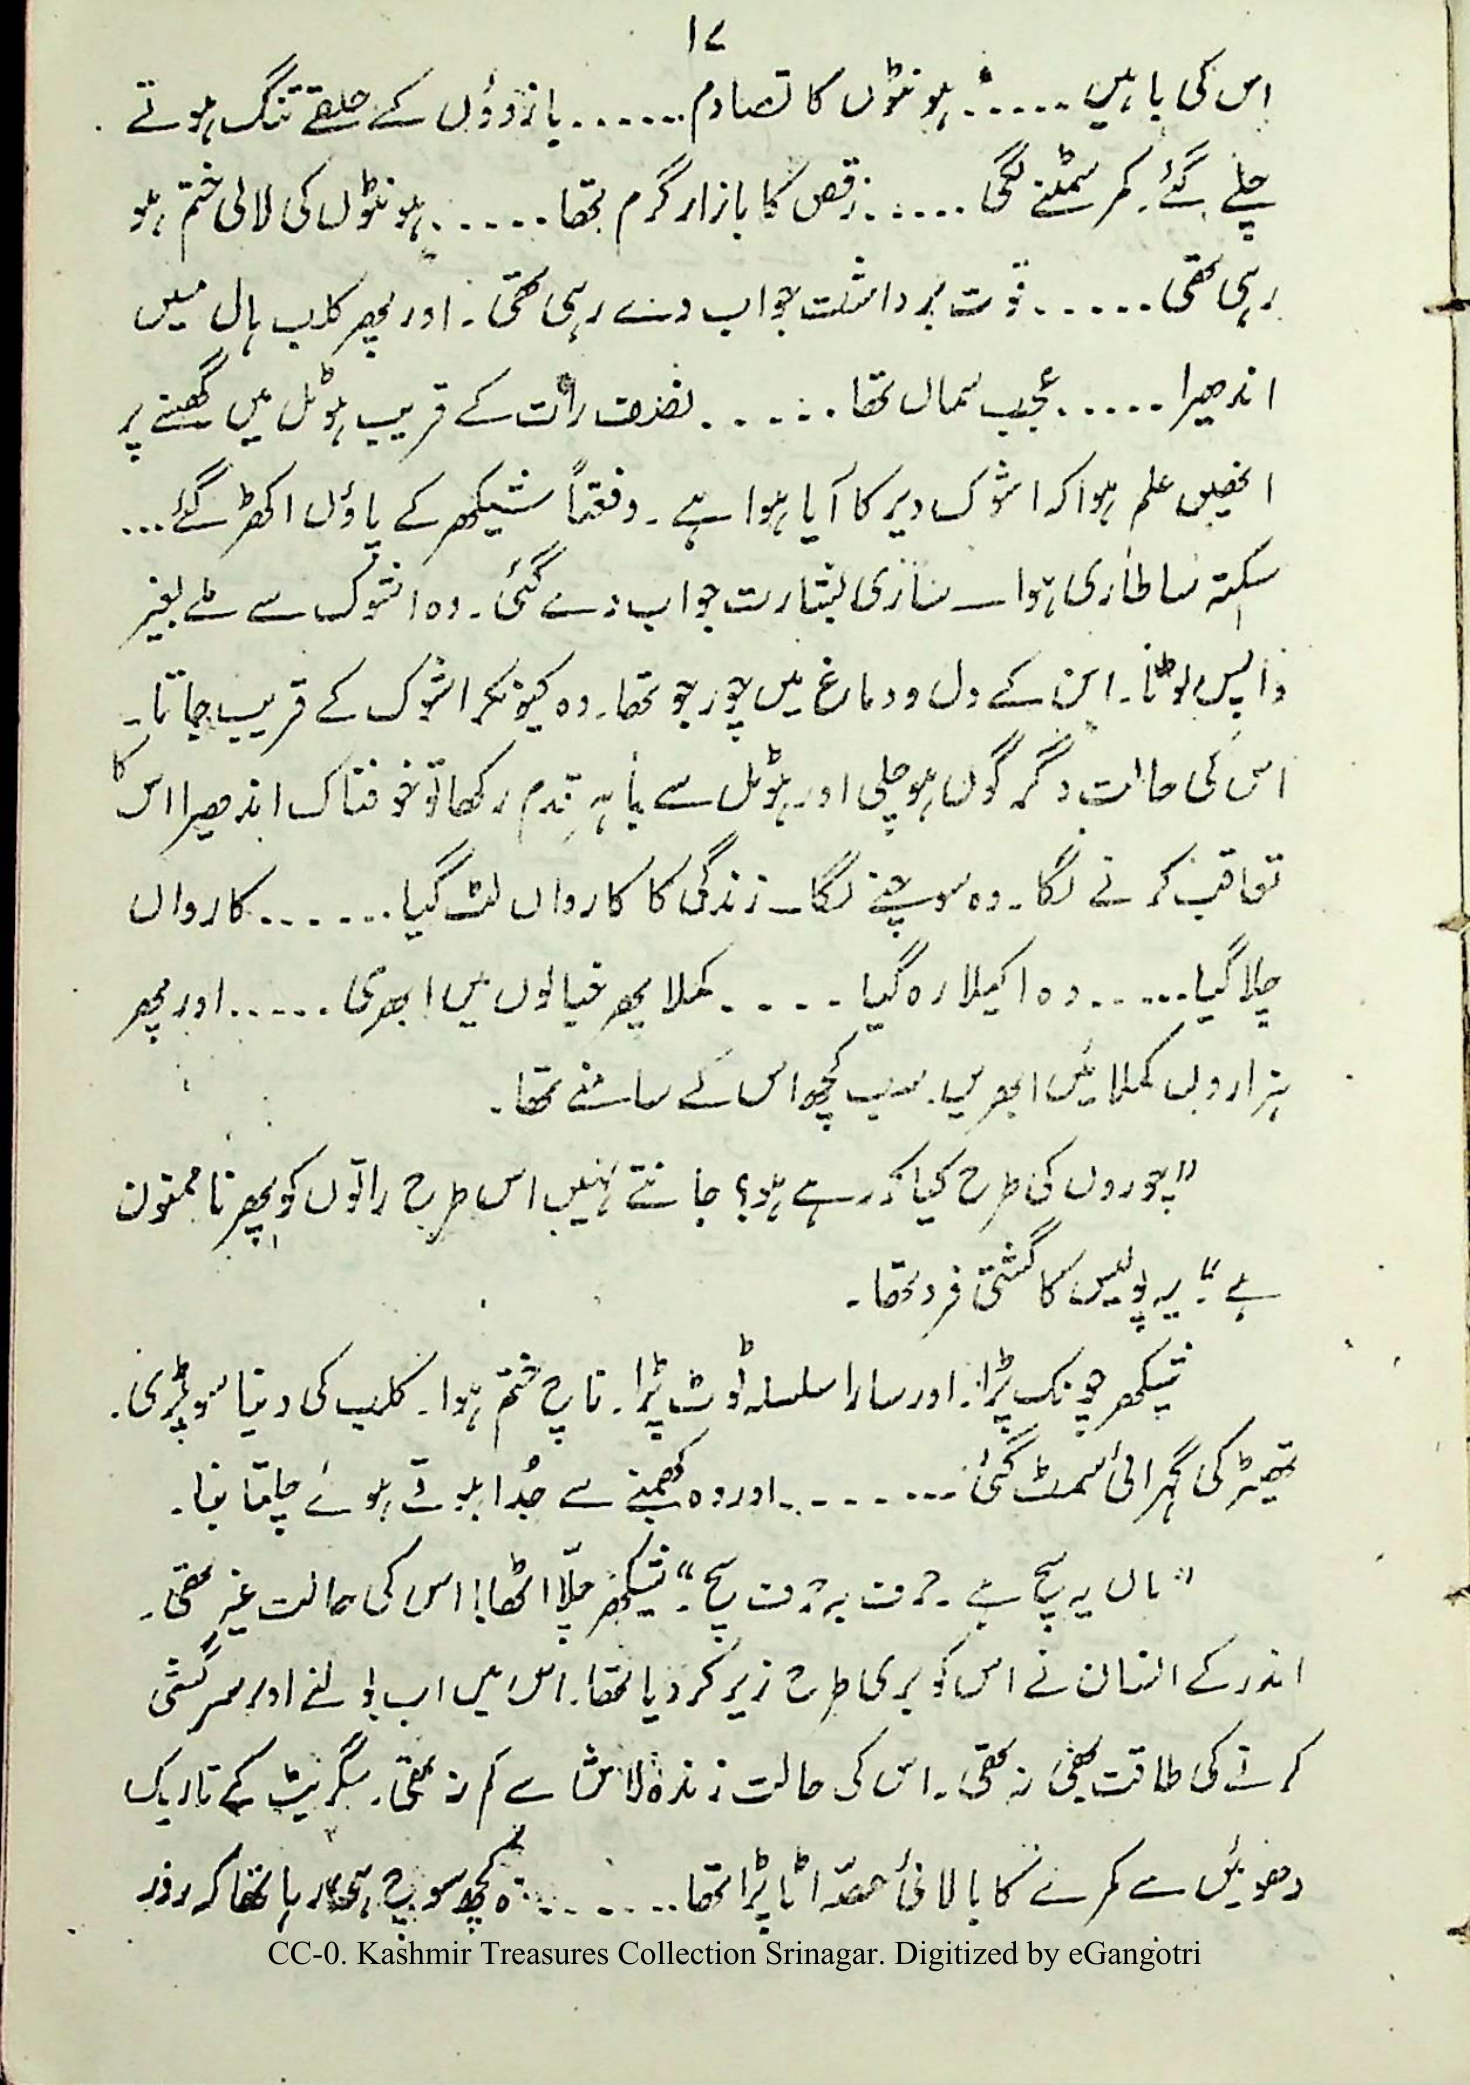 ۱۷
اس کی باہیں ..... ہونٹوں کا تصادم ...... بازوؤں کے حلقے تنگ ہوتے
چلے گئے۔ کمر سمٹنے لگی ..... رقص کا بازار گرم تھا ..... ہونٹوں کی لالی ختم ہو
رہی تھی ..... قوت برداشت جواب دے رہی تھی۔ اور پھر کلب ہال میں
اندھیرا ..... عجب سماں تھا ..... نصف رات کے قریب ہوٹل میں گھسنے پر
انھیں علم ہوا کہ اشوک دیر کا آیا ہوا ہے۔ دفعتاً شیکھر کے پاؤں اکھڑ گئے ...
سکتہ سا طاری ہوا ـ ساری بشارت جواب دے گئی۔ وہ اشوک سے ملے بغیر
واپس لوٹا۔ اس کے دل و دماغ میں چور جو تھا۔ وہ کیونکر اشوک کے قریب جاتا۔
اس کی حالت دگرگوں ہو چلی اور ہوٹل سے باہر قدم رکھا تو خوفناک اندھیرا اس کا
تعاقب کرنے لگا۔ وہ سوچنے لگا ـ زندگی کا کارواں لٹ گیا ...... کارواں
چلا گیا ...... وہ اکیلا رہ گیا ..... کملا پھر خیالوں میں ابھری ..... اور پھر
ہزاروں کملائیں ابھریں۔ سب کچھ اس کے سامنے تھا۔
"چوروں کی طرح کیا کر رہے ہو؟ جانتے نہیں اس طرح راتوں کو پھرنا ممنون
ہے"۔ یہ پولیس کا گشتی فرد تھا۔
شیکھر چونک پڑا۔ اور سارا سلسلہ ٹوٹ پڑا۔ ناچ ختم ہوا۔ کلب کی دنیا سو پڑی۔
تھیٹر کی گہرائی سمٹ گئی ........ اور وہ کھمبے سے جُدا ہوتے ہوئے چلتا بنا۔
"ہاں یہ سچ ہے۔ حرف بہ حرف سچ۔" شیکھر چلّا اٹھا! اس کی حالت غیر تھی۔
اندر کے انسان نے اس کو بری طرح زیر کر دیا تھا۔ اس میں اب بولنے اور سرکشی
کرنے کی طاقت بھی نہ تھی۔ اس کی حالت زندہ لاش سے کم نہ تھی۔ سگریٹ کے تاریک
دھوئیں سے کمرے کا بالائی حصّہ اٹا پڑا تھا ....... وہ کچھ سوچ ہی رہا تھا کہ روز
CC-0. Kashmir Treasures Collection Srinagar. Digitized by eGangotri